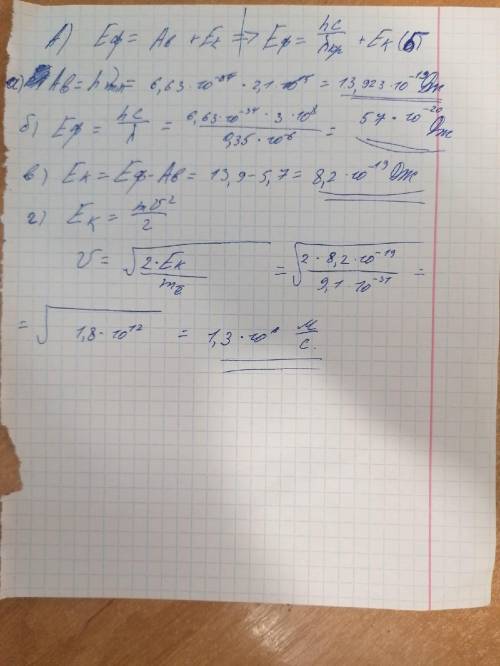 А) Eф = Aв + Eк => Eф = hc/λкр + Eк (Б)
а) Aв = h = 6,63·10⁻³⁴ · 2,1·10¹⁵ = 13,923·10⁻¹⁹ Дж
б) Eф = hc/λ = 6,63·10⁻³⁴·3·10⁸/0,35·10⁻⁶ = 57·10⁻²⁰ Дж
в) Eк = Eф - Aв = 13,9 - 5,7 = 8,2·10⁻¹⁹ Дж
г) Eк = mv²/2
v = √(2·Eк/me) = √(2·8,2·10⁻¹⁹/9,1·10⁻³¹) =
= √1,8·10¹² = 1,3·10 м/с.